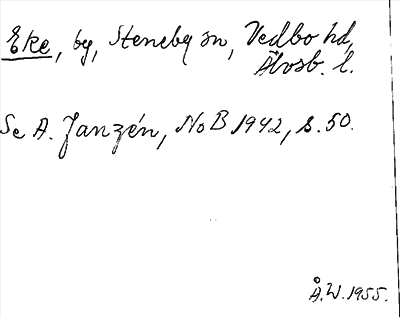 Eke, by, Steneby sn, Vedbo hd,
Älvsb. l.
Se A. Janzén, NoB 1942, s. 50.
Å.W. 1955.